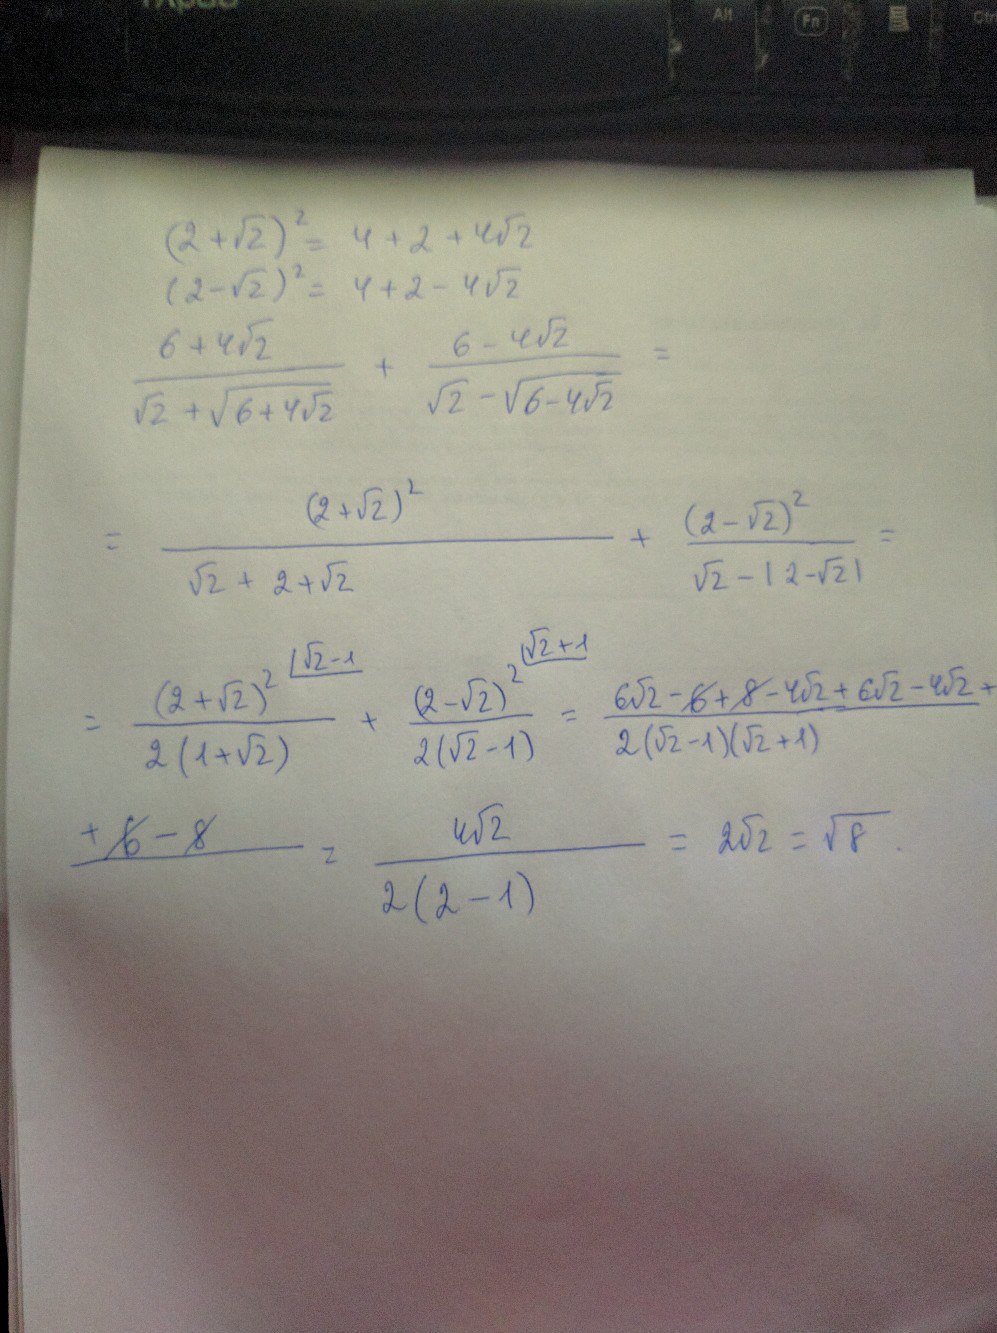 Alt Fn Ctr
(2+√2)² = 4+2+4√2
(2-√2)² = 4+2-4√2
(6+4√2)/(√2+√(6+4√2)) + (6-4√2)/(√2-√(6-4√2)) =
= (2+√2)²/(√2+2+√2) + (2-√2)²/(√2-|2-√2|) =
= (2+√2)² |√2-1/(2(1+√2)) + (2-√2)² |√2+1/(2(√2-1)) = (6√2-6+8-4√2+6√2-4√2+)/(2(√2-1)(√2+1))
+6-8 = 4√2/(2(2-1)) = 2√2 = √8.